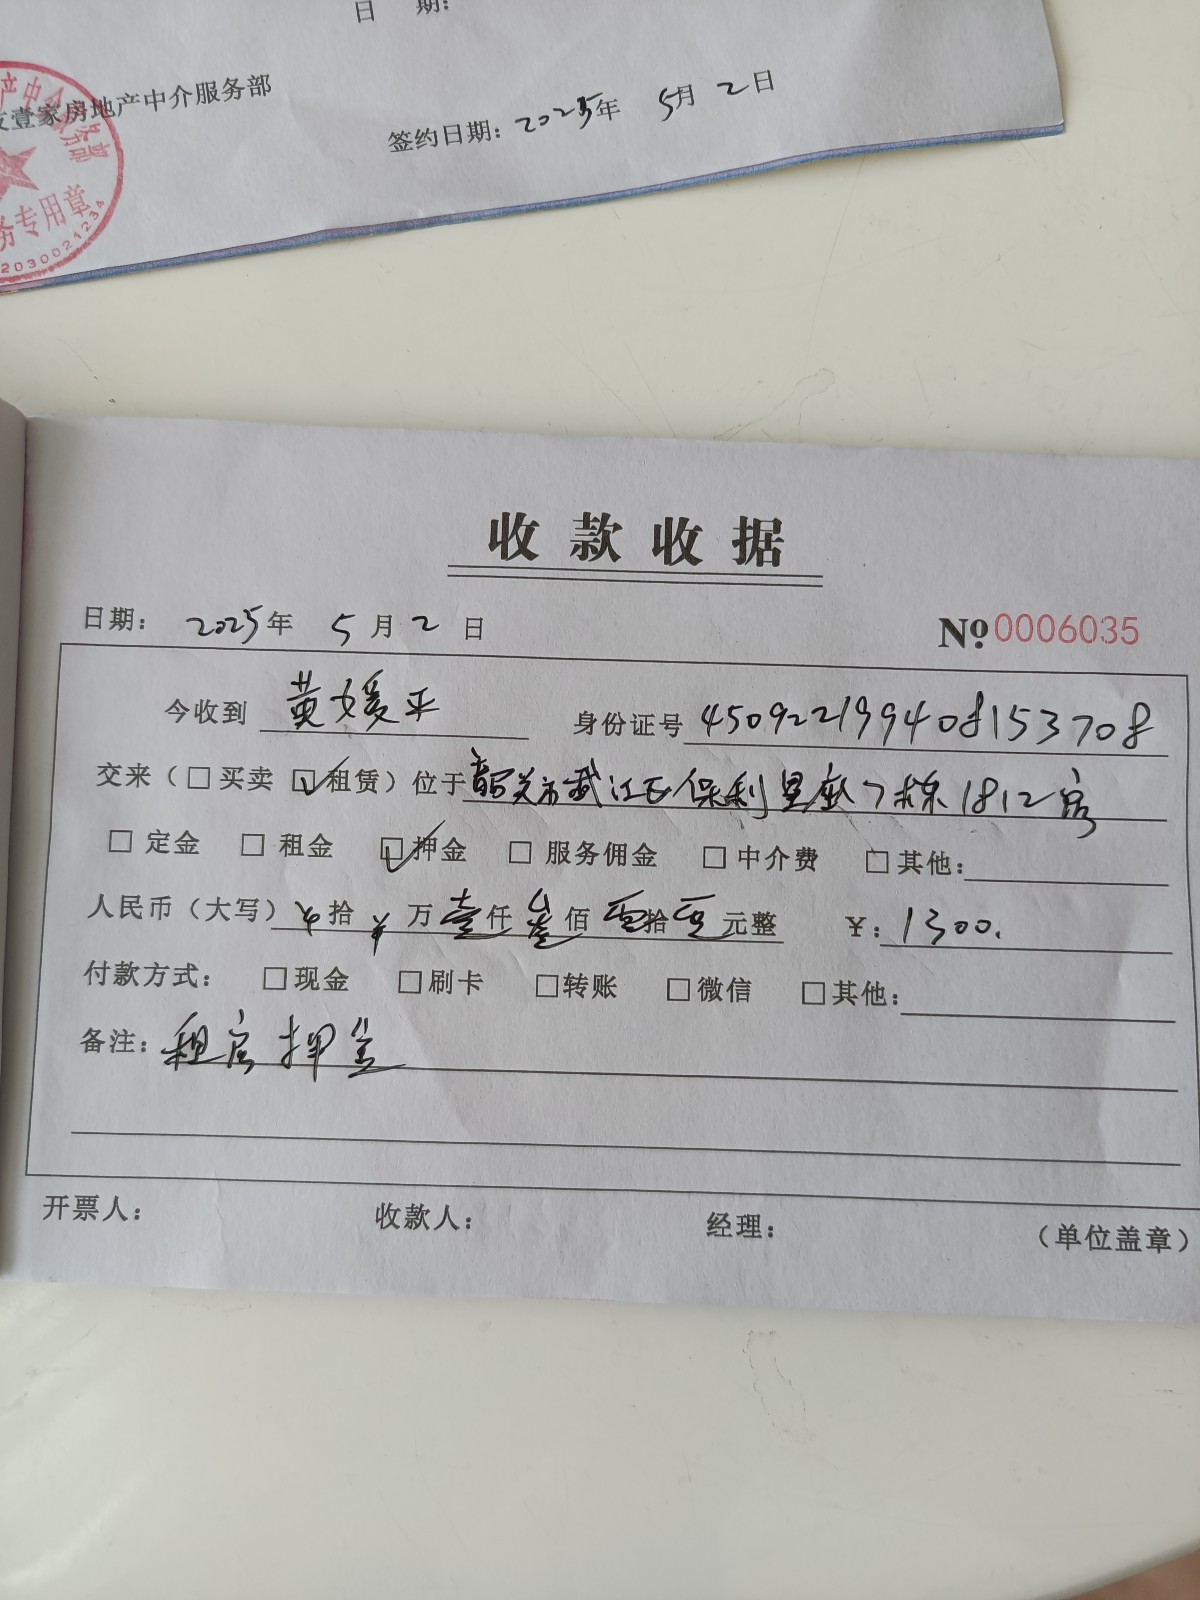 日 期：
壹家房地产中介服务部
签约日期：2025年 5月 2日
务专用章
2030021234
收款收据
日期： 2025年 5月 2 日 № 0006035
今收到 黄媛平 身份证号 450922199408153708
交来（□买卖 ☑租赁）位于韶关市武江区保利星座7栋1812房
□ 定金 □ 租金 ☑ 押金 □ 服务佣金 □ 中介费 □ 其他：
人民币（大写）¥拾¥万壹仟叁佰零拾零元整 ¥：1300.
付款方式： □现金 □刷卡 □转账 □微信 □其他：
备注：租房押金
开票人： 收款人： 经理： （单位盖章）